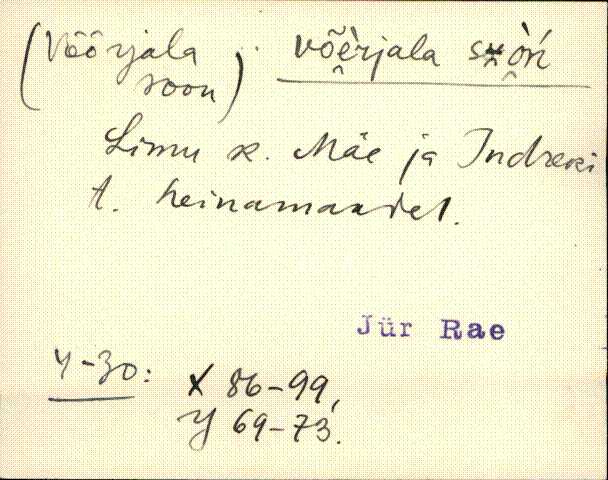 (Võõrjala soon) võèrjala sòń
Limu k. Mäe ja Indreki
t. heinamaadel.
Jür Rae
4-30: X 86-99,
y 69-73.